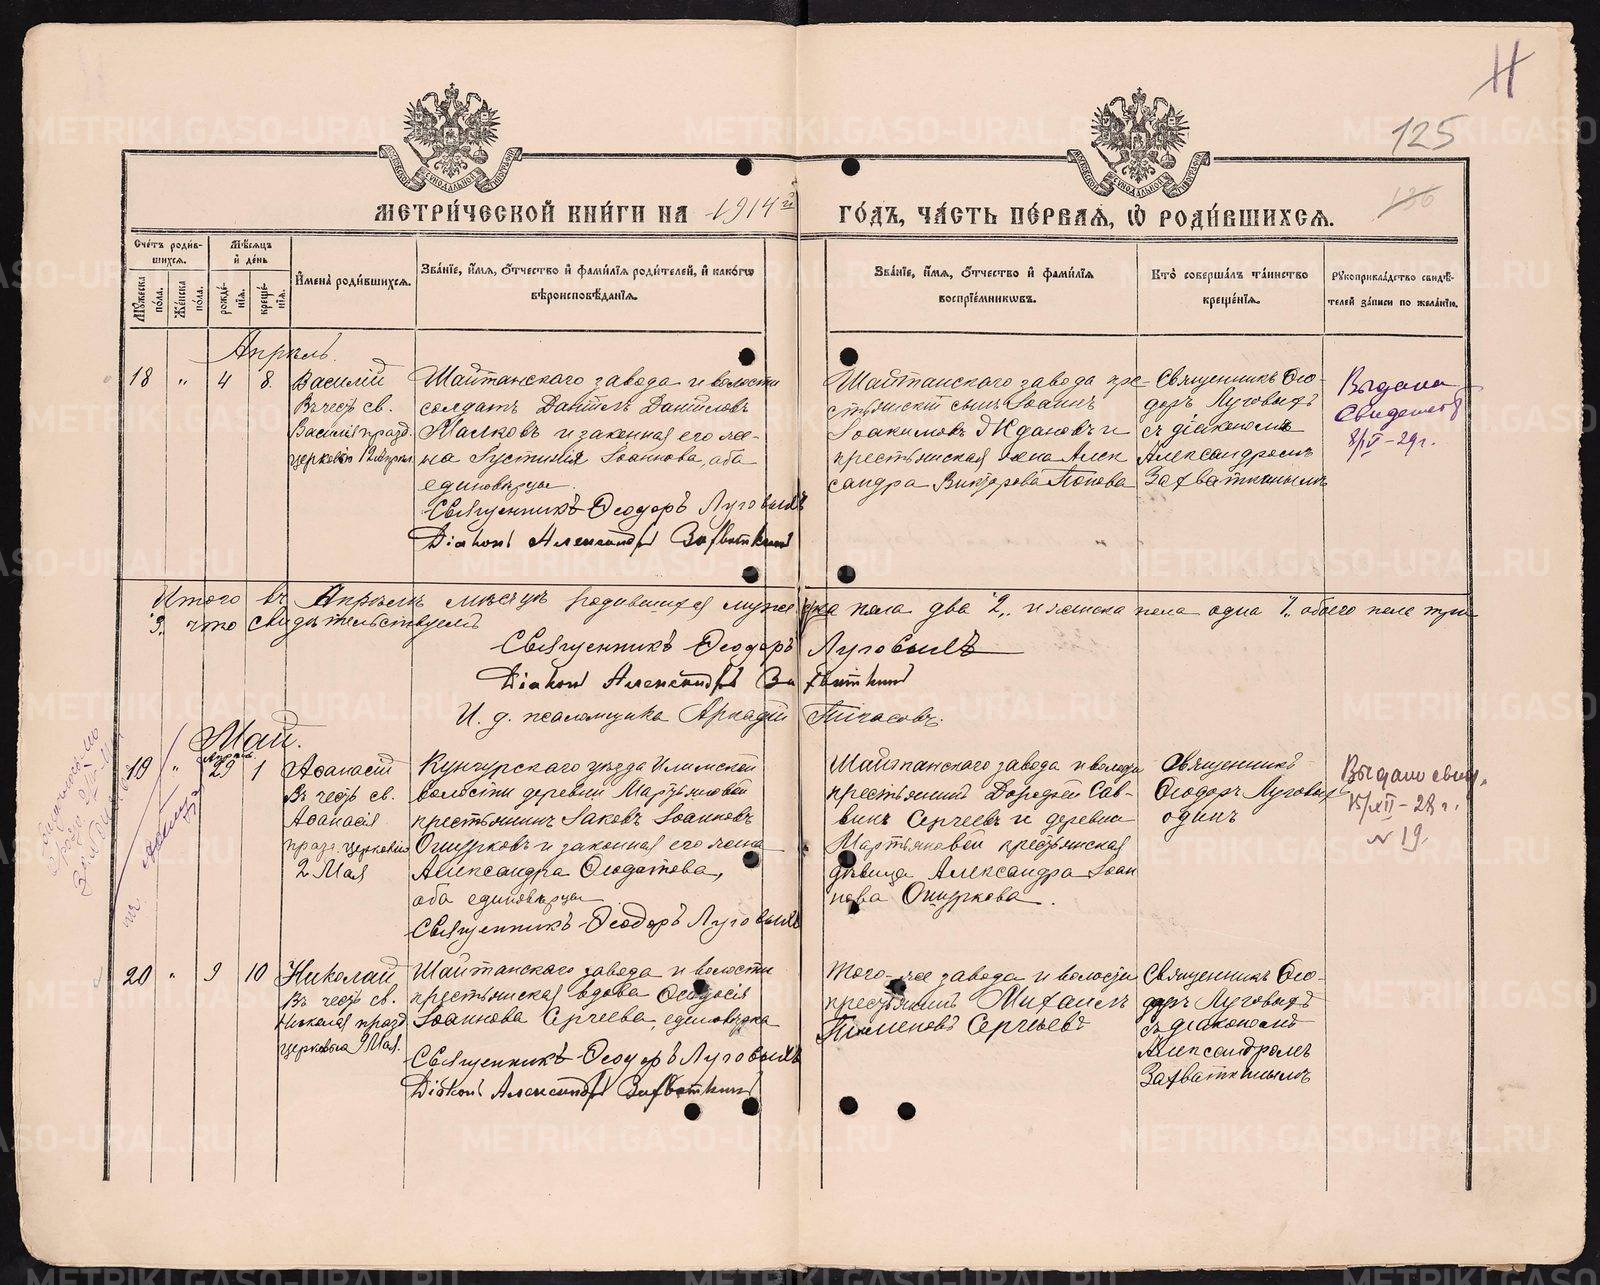 125
МЕТРИ́ЧЕСКОЙ КНИ́ГИ НА 1914й ГО́ДЪ, ЧА́СТЬ ПЕ́РВАЯ, Ѡ РОДИ́ВШИХСЯ.
Сче́тъ роди́в-
шихся.
Мѣ́сяцъ
и̂ де́нь
Му́жеска
по́ла.
Же́нска
по́ла.
рожде́-
нїя.
креще́-
нїя.
И̂мена̀ роди́вшихся.
Зва́нїе, и̂́мя, ѻ́тчество и̂ фами́лїѧ роди́телей, и̂ како́гѡ
вѣроисповѣ́данїя.
Зва́нїе, и̂́мя, ѻ́тчество и̂ фами́лїѧ
воспрїе́мникѡвъ.
Кто̀ соверша́лъ та́инство
креще́нїя.
Рꙋкоприкла́дство свидѣ́-
телей за́писи по жела́нїю.
Апрѣль.
18 " 4 8
Василій
Въ честь св.
Василія празд.
церковію 12 Апрѣл.
Шайтанскаго завода и волости
солдатъ Даніилъ Даніиловъ
Малковъ и законная его же-
на Іустинія Іоаннова, оба
единовѣрцы.
Священникъ Ѳеодоръ Луговыхъ
Діаконъ Александръ Захваткинъ
Шайтанскаго завода кре-
стьянскій сынъ Іоаннъ
Іоакимовъ Ждановъ и
крестьянская жена Алек
сандра Викторова Попова
Священникъ Ѳео-
доръ Луговыхъ
съ діакономъ
Александромъ
Захваткинымъ
Выдано
Свидетел
8/V-29г.
Итого въ Апрѣлѣ мѣсяцѣ родившихся мужеска пола два "2„ и женска пола одна "1„ обоего пола три
"3„ что свидѣтельствуемъ
Священникъ Ѳеодоръ Луговыхъ
Діаконъ Александръ Захваткинъ
И. д. псаломщика Аркадій
Май.
19 " Апрѣль 29 1
Аѳанасій
Въ честь св.
Аѳанасія
празд. церковію
2 Мая
Кунгурскаго уѣзда Илимской
волости деревни Мартьяновой
крестьянинъ Іаковъ Іоанновъ
Ошурковъ и законная его жена
Александра Ѳеодотова,
оба единовѣрцы
Священникъ Ѳеодоръ Луговыхъ
Шайтанскаго завода и волости
крестьянинъ Дорофей Сав-
винъ Сергѣевъ и деревни
Мартьяновой крестьянская
дѣвица Александра Іоан
нова Ошуркова.
Священникъ
Ѳеодоръ Луговыхъ
одинъ
Выдано свид.
15/XII-28г.
№ 19.
20 " 9 10
Николай
Въ честь св.
Николая празд.
церковью 9 Мая.
Шайтанскаго завода и волости
крестьянская вдова Ѳеодосія
Іоаннова Сергѣева, единовѣрка
Священникъ Ѳеодоръ Луговыхъ
Діаконъ Александръ Захваткинъ
Того-же завода и волости
крестьянинъ Михаилъ
Пименовъ Сергѣевъ
Священникъ Ѳео-
доръ Луговыхъ
съ діакономъ
Александромъ
Захваткинымъ
METRIKI.GASO-URAL.RU